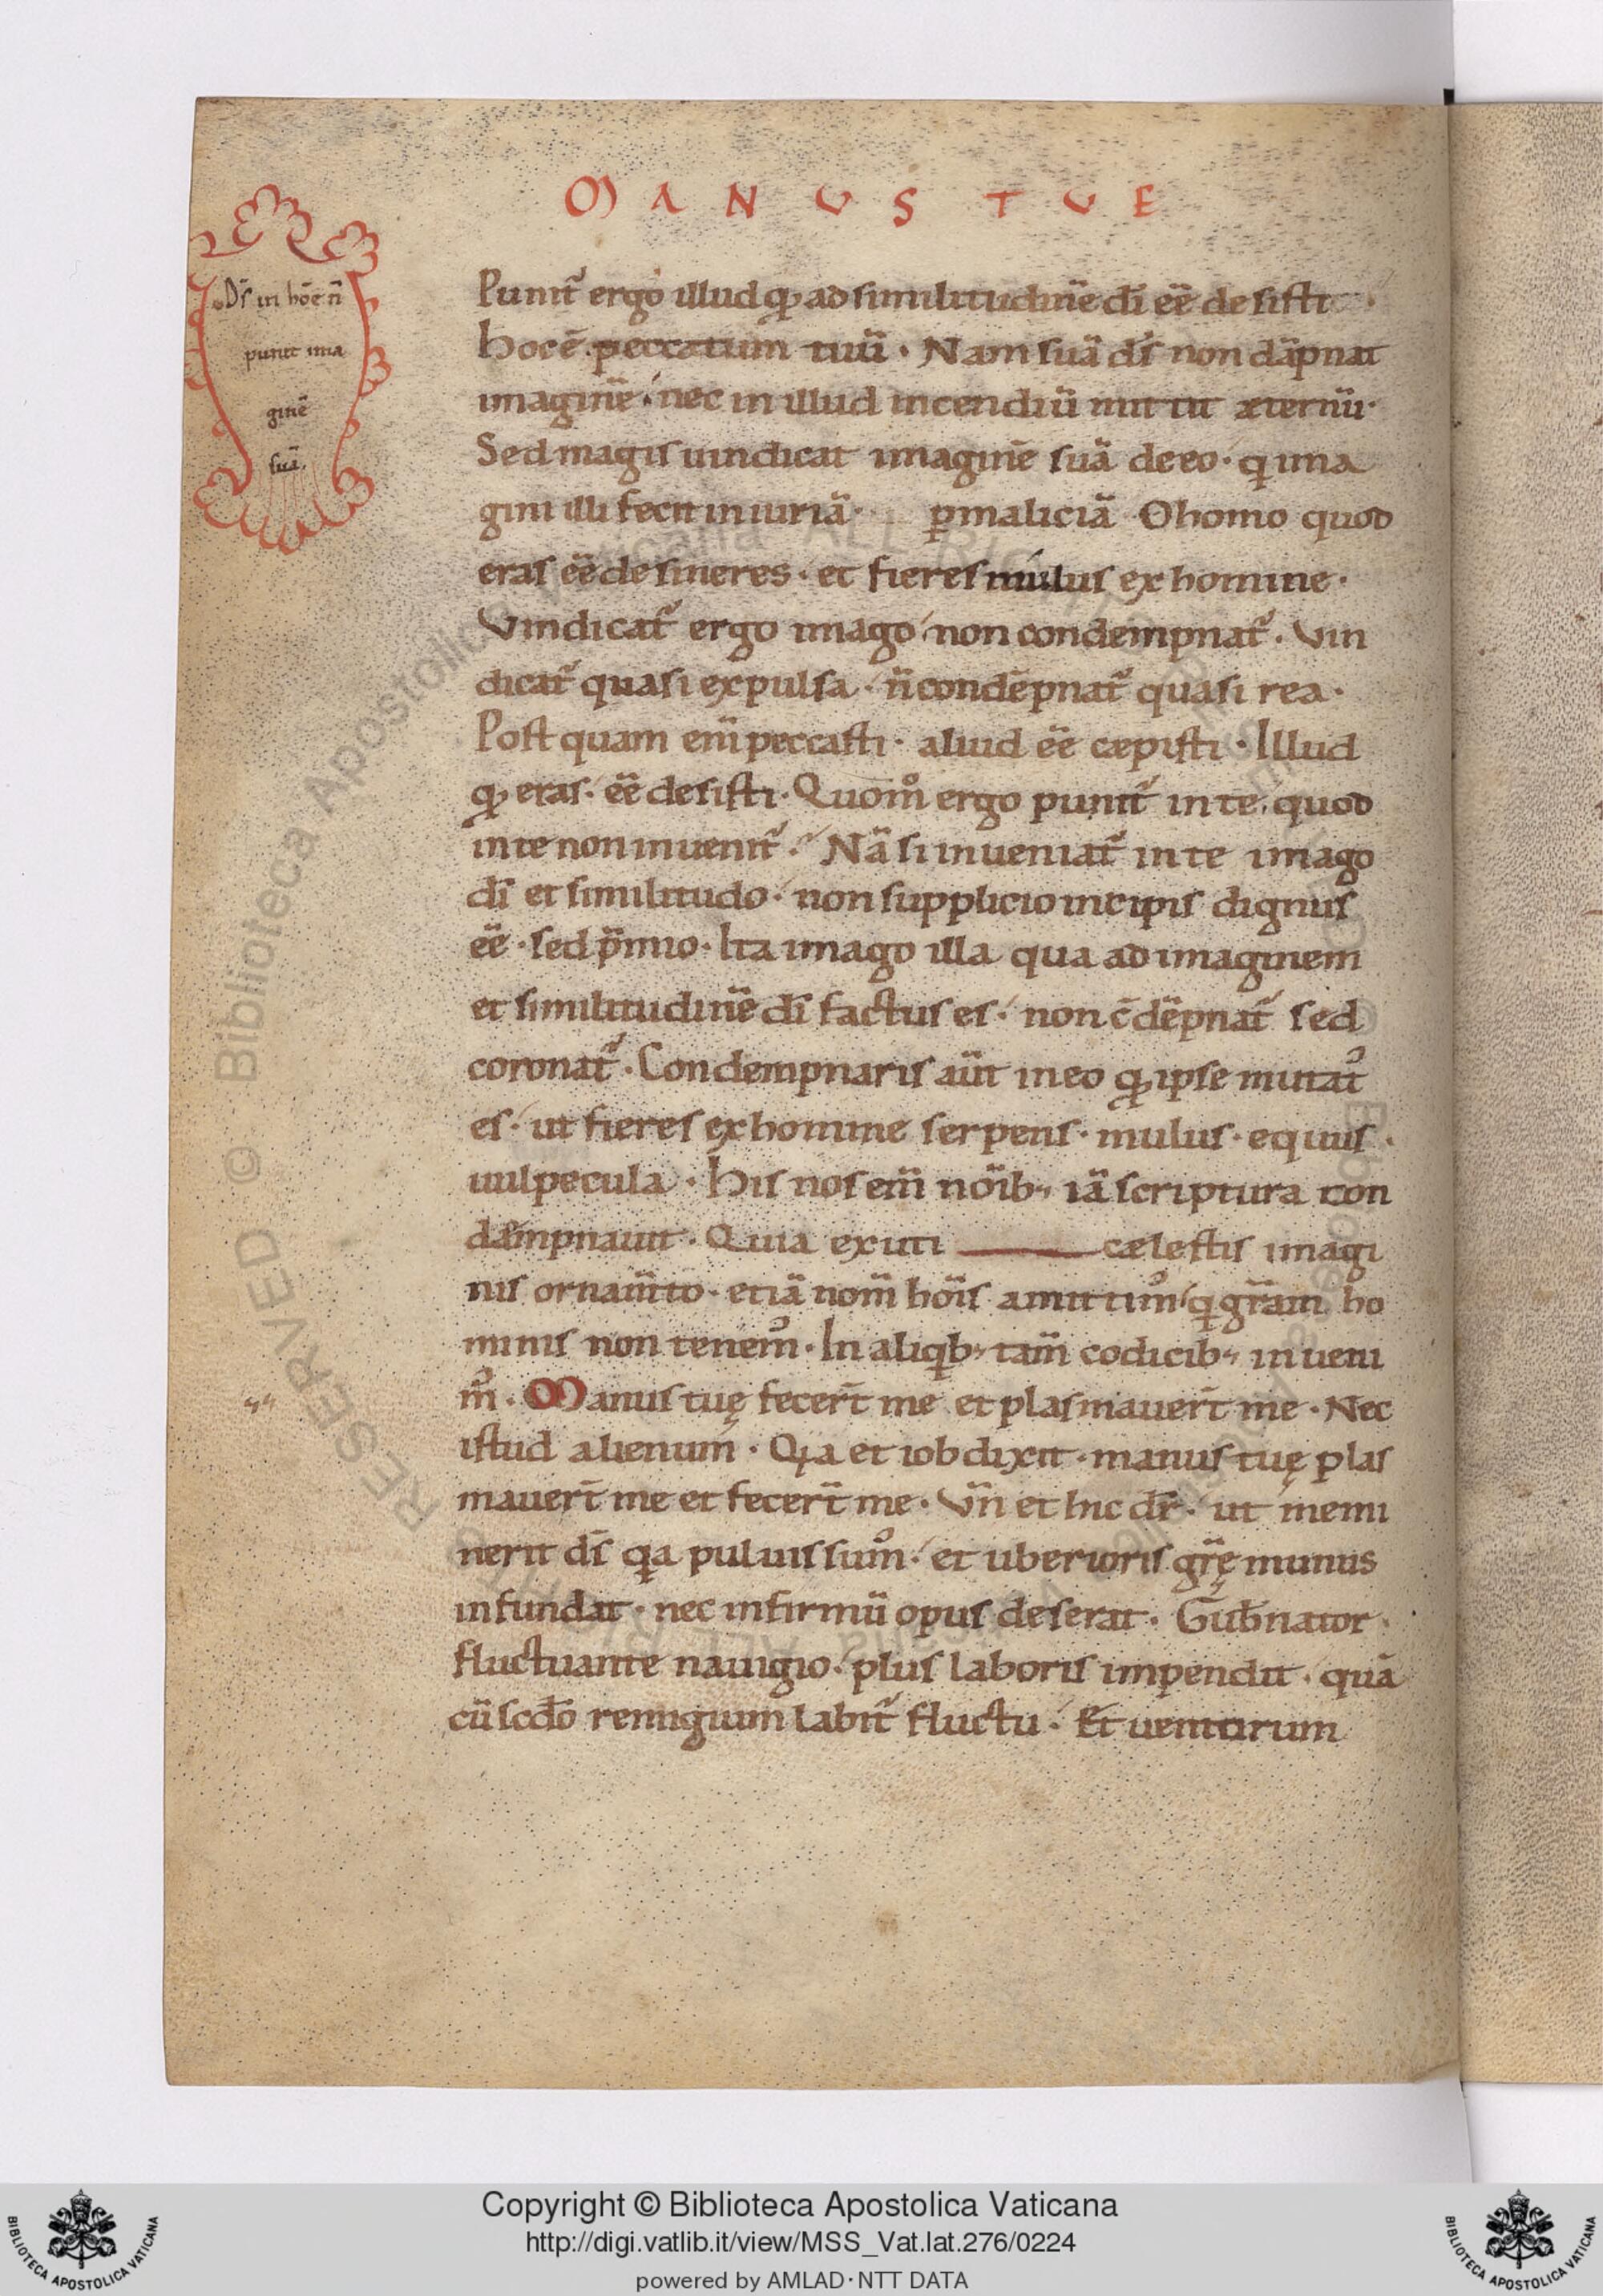 MANUS TUE
Ds̄ in hoēn̄
punit ima
ginē
suā.
Punit᷑ ergo illud qđ ad similitudinē dī eē desisti
hoc ē peccatum tuū · Nam suā ds̄ non dāpnat
imaginē · nec in illud incendiū mittit æternū ·
Sed magis uindicat imaginē suā de eo · q̇ ima
gini illi fecit iniuriā · ꝑ maliciā O homo quod
eras eē desineres · et fieres mulus ex homine ·
Vindicat᷑ ergo imago non condempnat᷑ · Vin
dicat᷑ quasi expulsa · n̄ condēpnat᷑ quasi rea ·
Postquam enī peccasti · aliud eē cæpisti · Illud
qđ eras · eē desisti · Quom̊ ergo punit᷑ in te · quod
in te non inuenit᷑ · Nā si inueniat᷑ in te imago
dī et similitudo · non supplicio incipis dignus
eē · sed p̄mio · Ita imago illa qua ad imaginem
et similitudinē dī factus es · non c̄dēpnat᷑ sed
coronat᷑ · Condempnaris aūt in eo qđ ipse mutatꝰ
es · ut fieres ex homine serpens · mulus · equus ·
uulpecula · His nos enī noīb; iā scriptura con
dæmpnauit · Quia exuti cælestis imagi
nis ornam̄to · etiā nom̄ hoīs amittimꝰ q̇ gr̄am ho
minis non tenemꝰ · In aliqb; tam̄ codicib; inueni
mꝰ · Manus tuę fecer̄t me et plasmauer̄t me · Nec
istud alienum · Qia et iob dixit · manus tuę plas
mauer̄t me et fecer̄t me · Vn̄ et hic dr̄ · ut memi
nerit ds̄ qa puluis sumꝰ · et uberioris gr̄ę munus
infundat · nec infirmū opus deserat · Gub̄nator
fluctuante nauigio · plus laboris impendit · quā
cū scđo remigium labit᷑ fluctu · Et uentorum
Copyright © Biblioteca Apostolica Vaticana
http://digi.vatlib.it/view/MSS_Vat.lat.276/0224
powered by AMLAD·NTT DATA
BIBLIOTECA APOSTOLICA VATICANA
BIBLIOTECA APOSTOLICA VATICANA